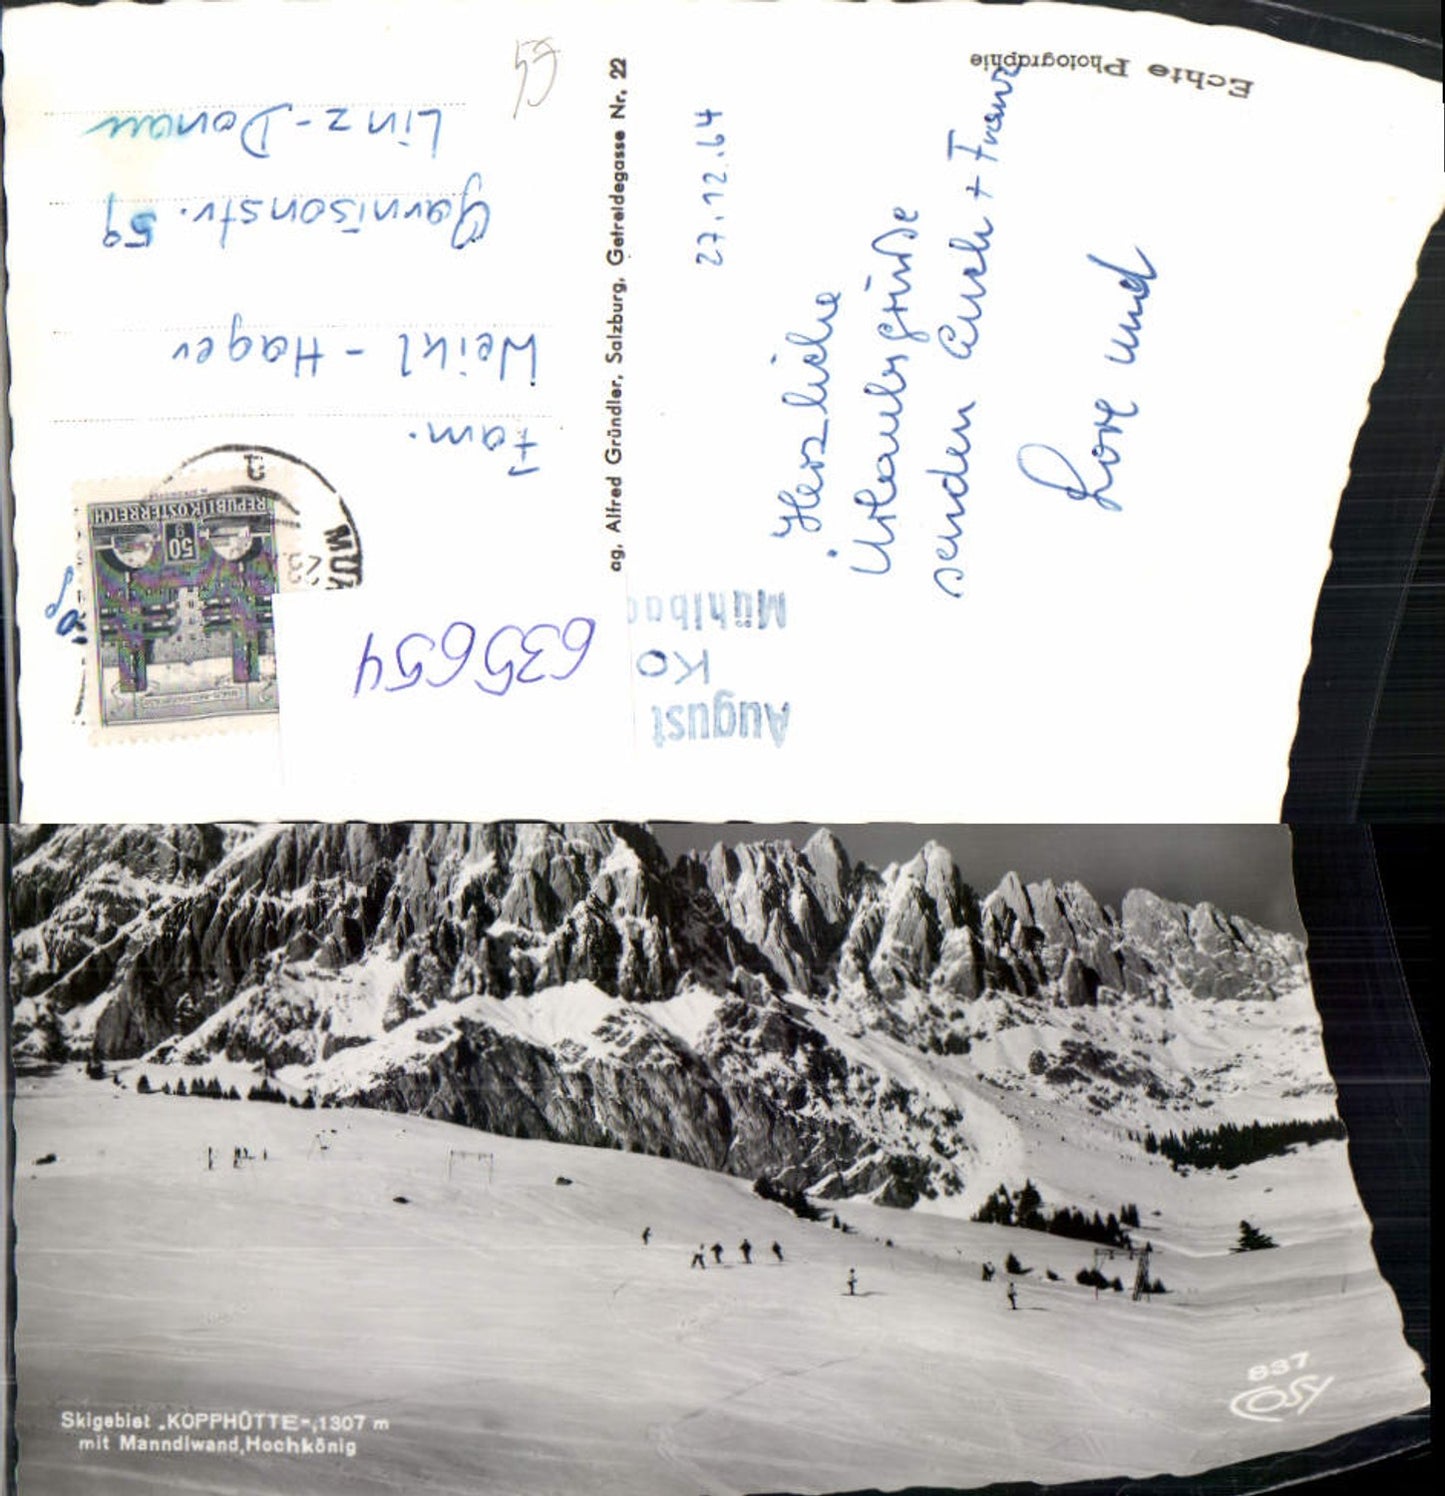 Echte Photographie
59
Linz-Donau
Garnisonstr. 59
Weikl-Hager
Fam.
ag, Alfred Gründler, Salzburg, Getreidegasse Nr. 22
27.12.64
Herzliche
Urlaubsgrüße
senden Euch + Franz
Lore und
REPUBLIK ÖSTERREICH
50
g
635654
August
KO
Mühlbac
Skigebiet „KOPPHÜTTE“, 1307 m
mit Manndlwand, Hochkönig
837
COSY